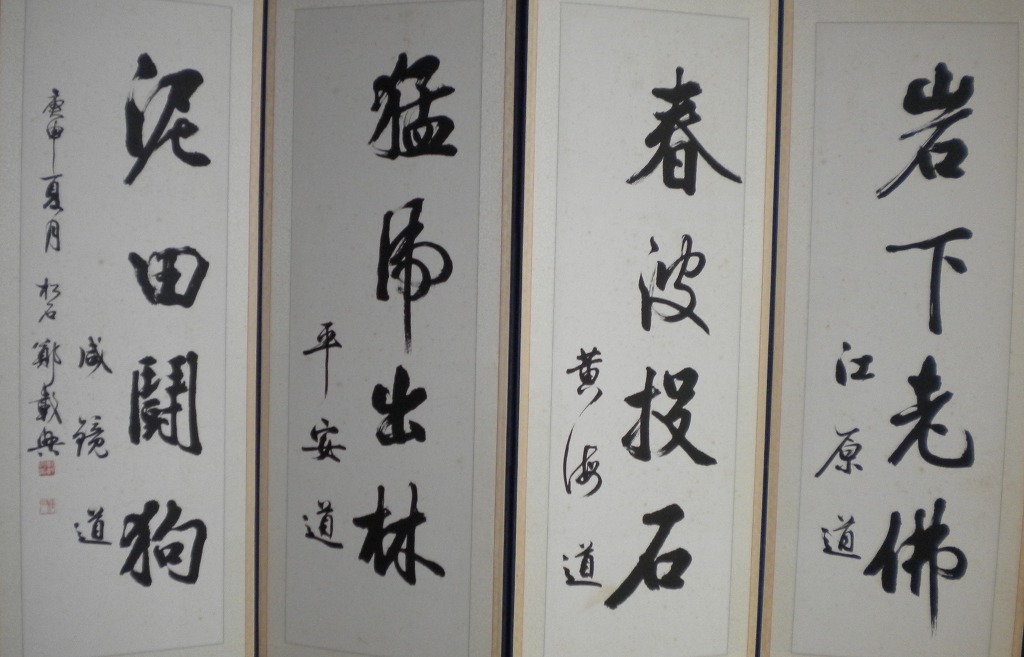 岩下老佛
江原道
春波投石
黄海道
猛虎出林
平安道
泥田鬪狗
咸鏡道
庚申夏月 松石 鄭載興